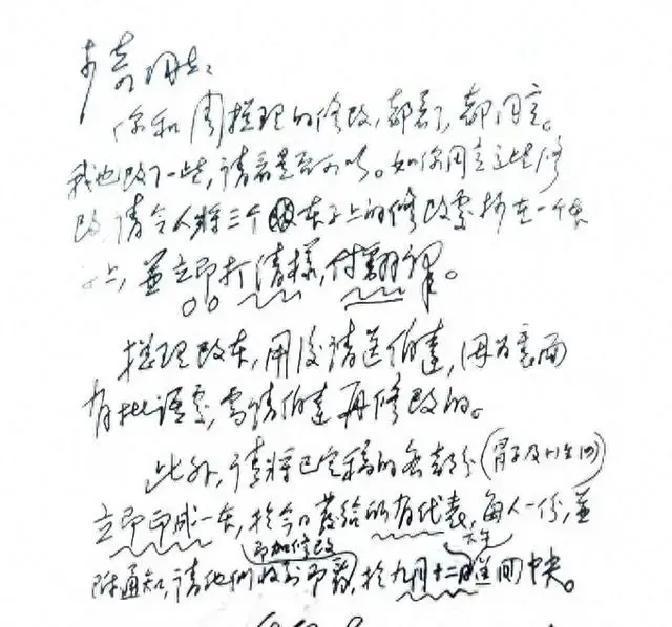 少奇同志：
你和周总理的修改，都看了，都同意。
我也改了一些，请看是否可以。如你同意这些修
改，请令人将三个本子上的修改处抄在一个本
上，并立即打清样，付翻译。
总理改本，用后请送伯达，因为里面
有批语处，需请伯达再修改的。
此外，请将已定稿的各部分
立即印成一本，于今日发给所有代表，每人一份，并
即加修改
附通知，请他们收到即看，于九月十二日退回中央。